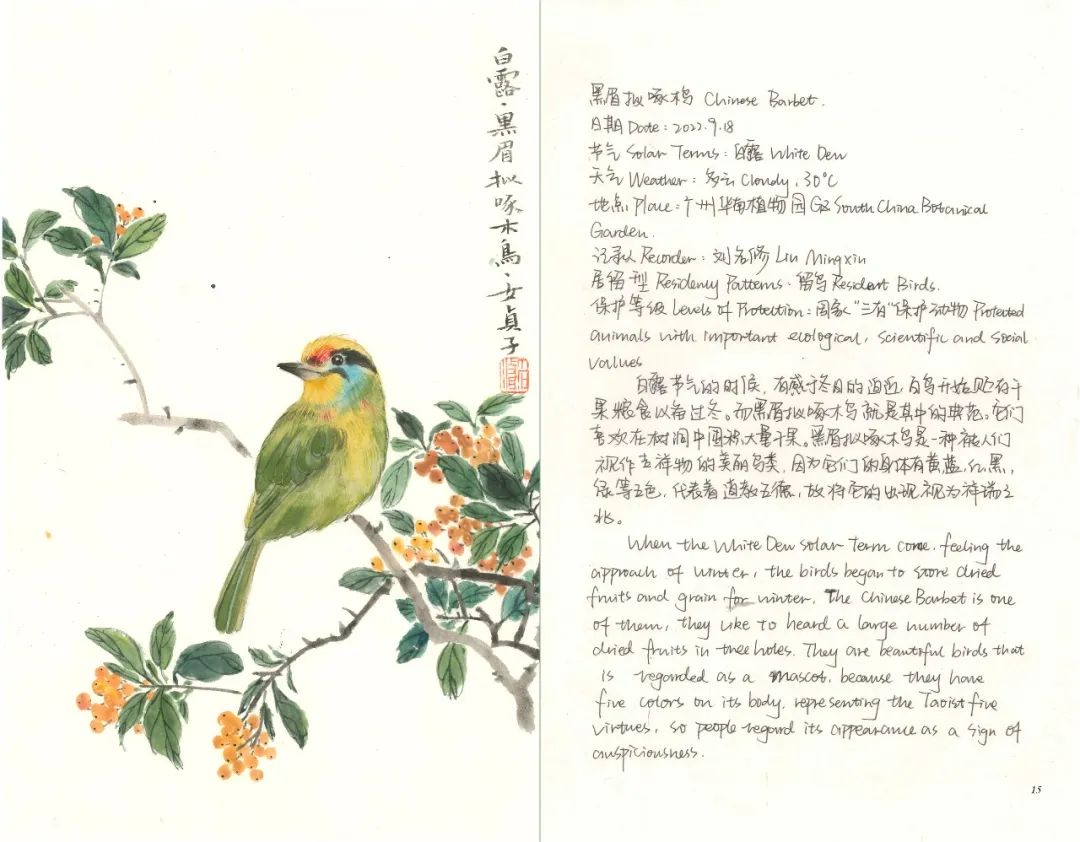 白露·黑眉拟啄木鳥·女貞子
黑眉拟啄木鸟 Chinese Barbet.
日期 Date: 2022.9.18
节气 Solar Terms: 白露 White Dew
天气 Weather: 多云 Cloudy, 30°C
地点 Place: 广州华南植物园 GZ South China Botanical
Garden.
记录人 Recorder: 刘名修 Liu Mingxiu
居留型 Residency Patterns: 留鸟 Resident Birds.
保护等级 Levels of Protection: 国家"三有"保护动物 Protected
animals with important ecological, scientific and social
values
白露节气的时候,有感于冬日的迫近,百鸟开始贮存干
果粮食以备过冬。而黑眉拟啄木鸟就是其中的典范。它们
喜欢在树洞中囤积大量干果。黑眉拟啄木鸟是一种被人们
视作吉祥物的美丽鸟类,因为它们的身体有黄,蓝,红,黑,
绿等五色,代表着道教五德,故将它的出现视为祥瑞之
兆。
When the White Dew solar Term come, feeling the
approach of winter, the birds began to store dried
fruits and grain for winter. The Chinese Barbet is one
of them, they like to heard a large number of
dried fruits in tree holes. They are beautiful birds that
is regarded as a mascot, because they have
five colors on its body, representing the Taoist five
virtues, so people regard its appearance as a sign of
auspiciousness.
15